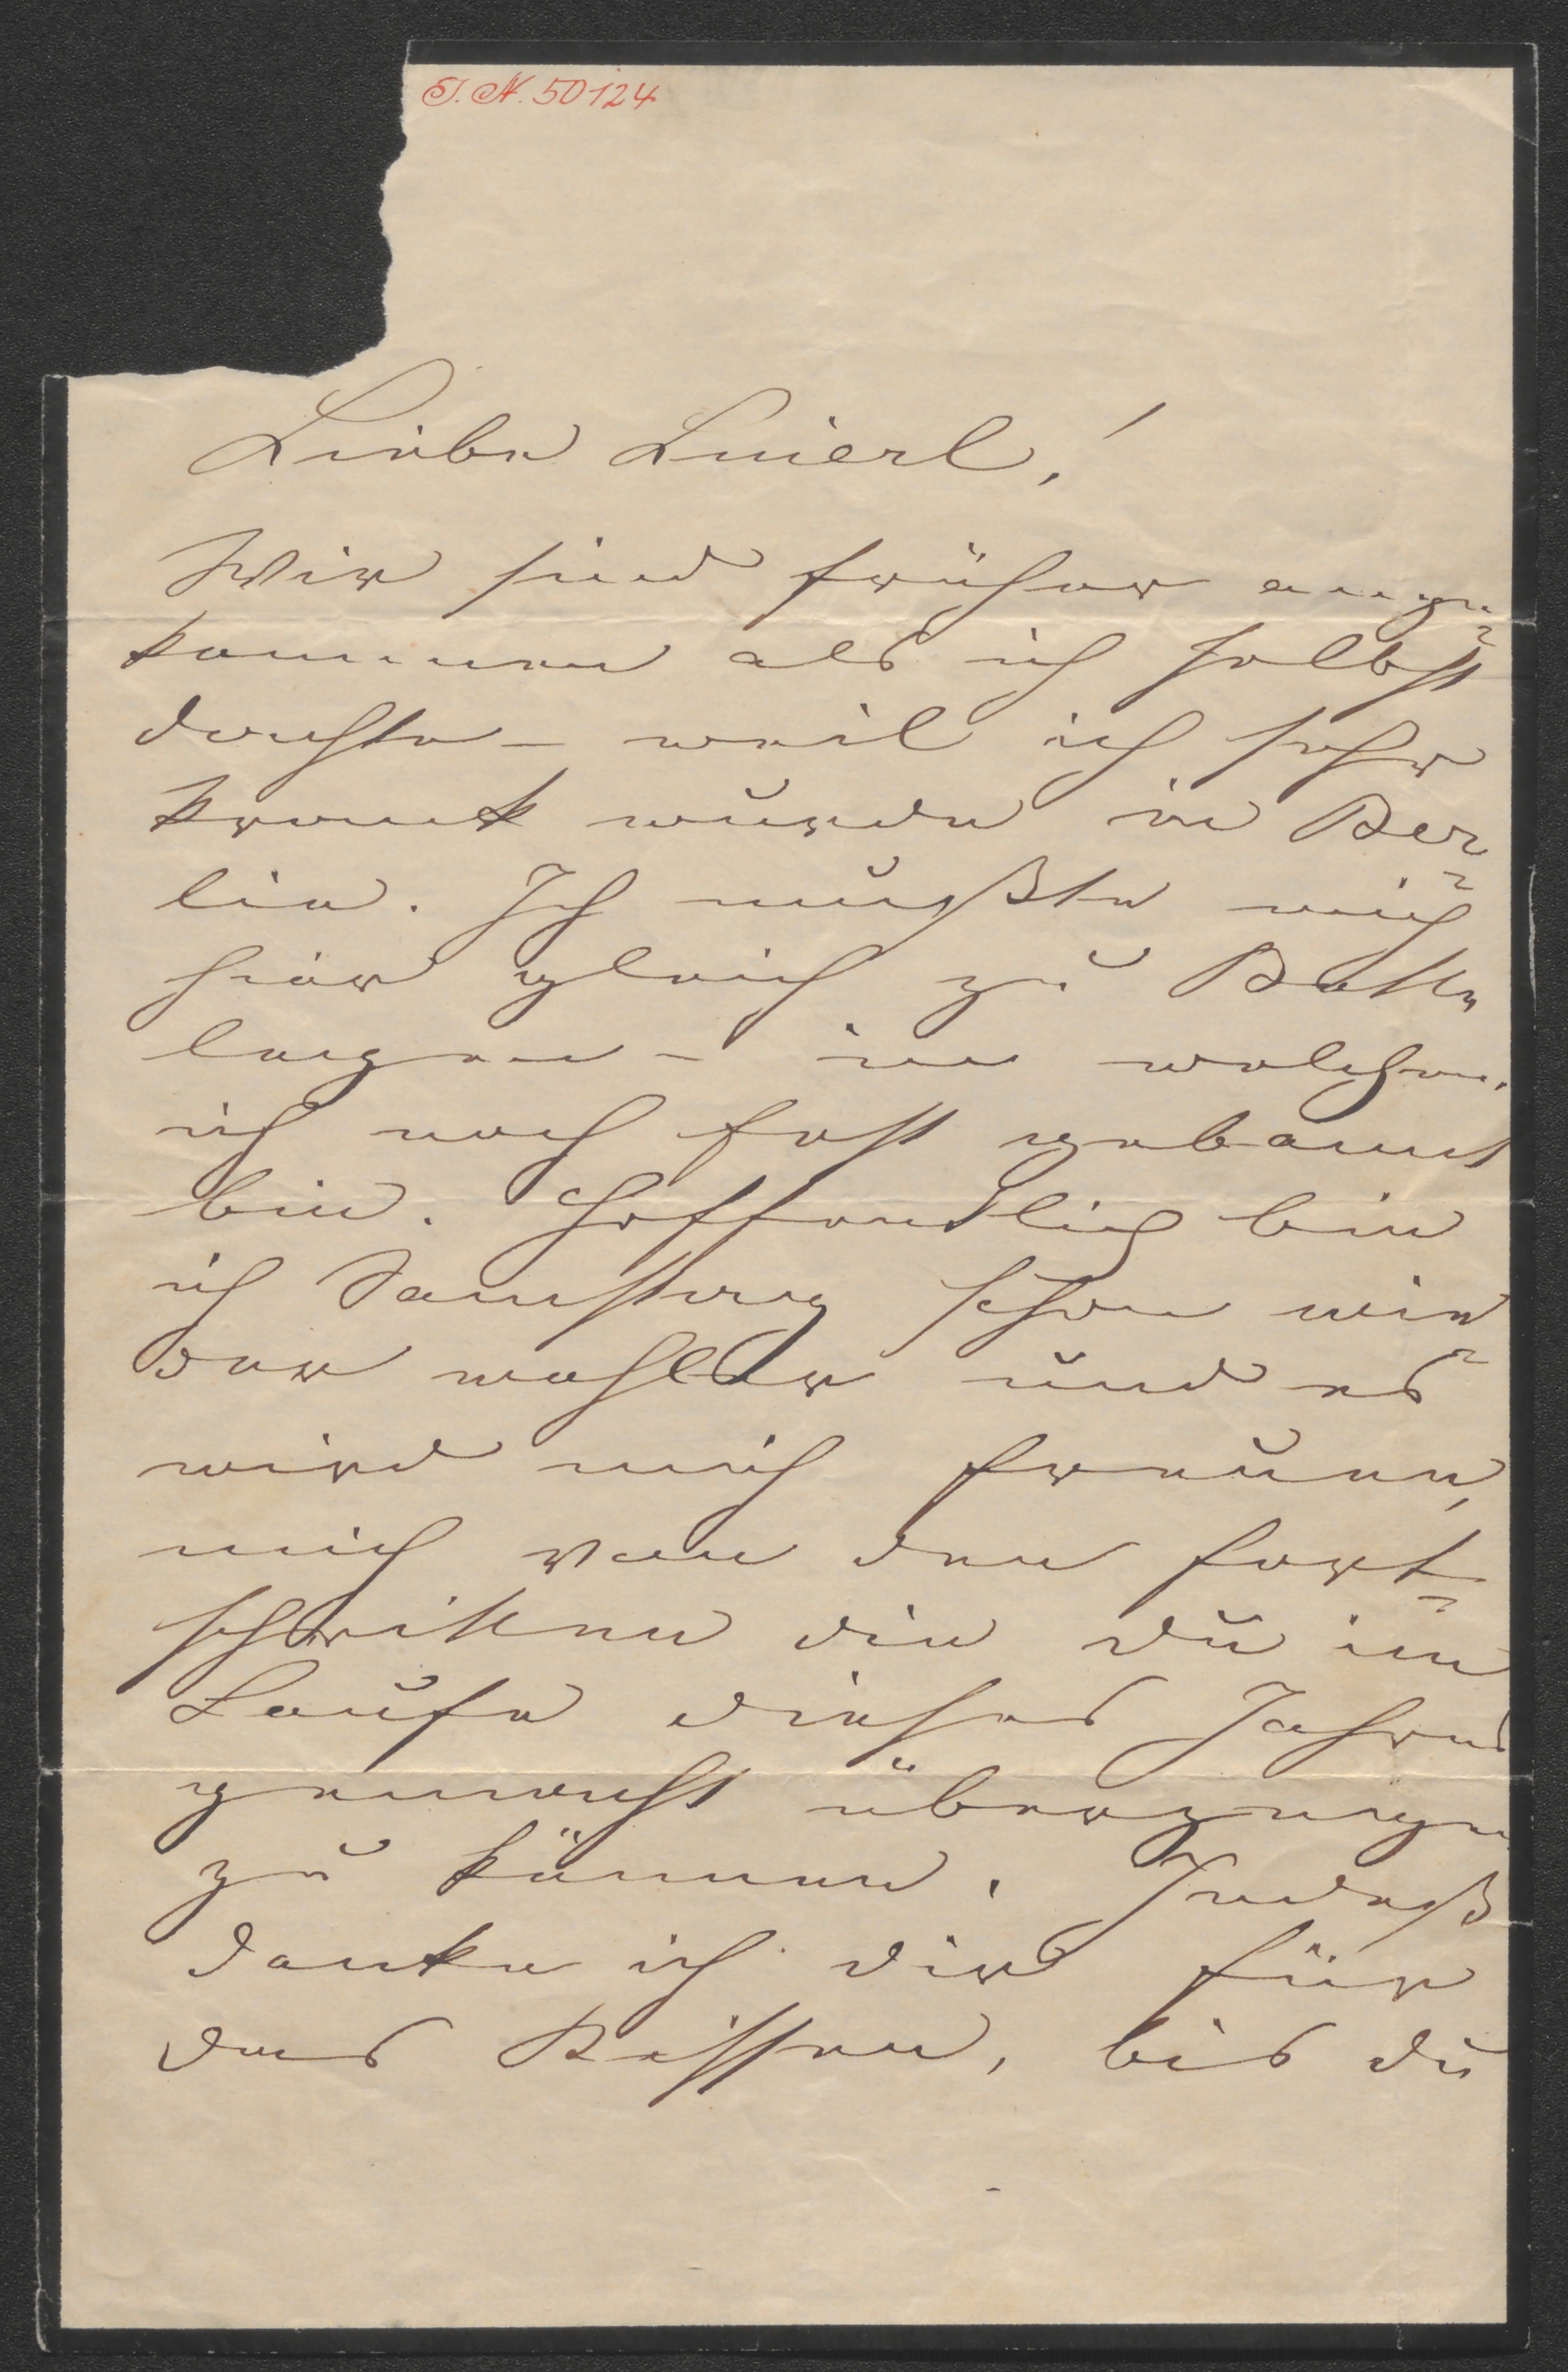 I. N. 50124
Liebe Luierl!
Wir sind früher ange-
kommen als ich selbst
dachte – weil ich sehr
krank wurde in Ber-
lin. Ich mußte mich
hier gleich zu Bette
legen – in welchem
ich noch fest gebannt
bin. Hoffentlich bin
ich Samstag schon wie-
der wohler und es
wird mich freuen,
mich von den Fort-
schritten die du im
Laufe dieses Jahres
gemacht überzeugen
zu können. Indeß
danke ich dir für
das Kissen, bis du